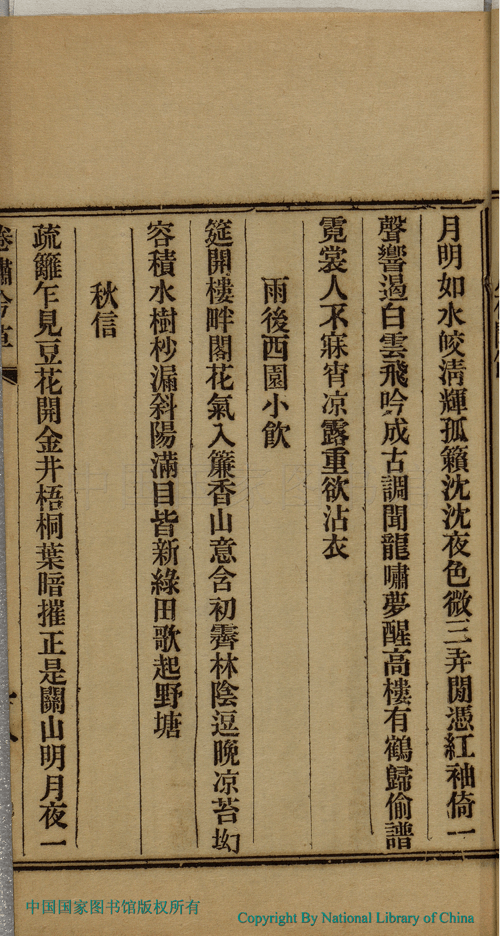 月明如水皎淸輝孤籟沈沈夜色微三弄閒憑紅袖倚一
聲響遏白雲飛吟成古調聞龍嘯夢醒高樓有鶴歸偷譜
霓裳人不寐宵凉露重欲沾衣
雨後西園小飮
筵開樓畔閣花氣入簾香山意含初霽林陰逗晚凉苔坳
容積水樹杪漏斜陽滿目皆新綠田歌起野塘
秋信
疏籬乍見豆花開金井梧桐葉暗摧正是關山明月夜一
中国国家图书馆版权所有
Copyright By National Library of China